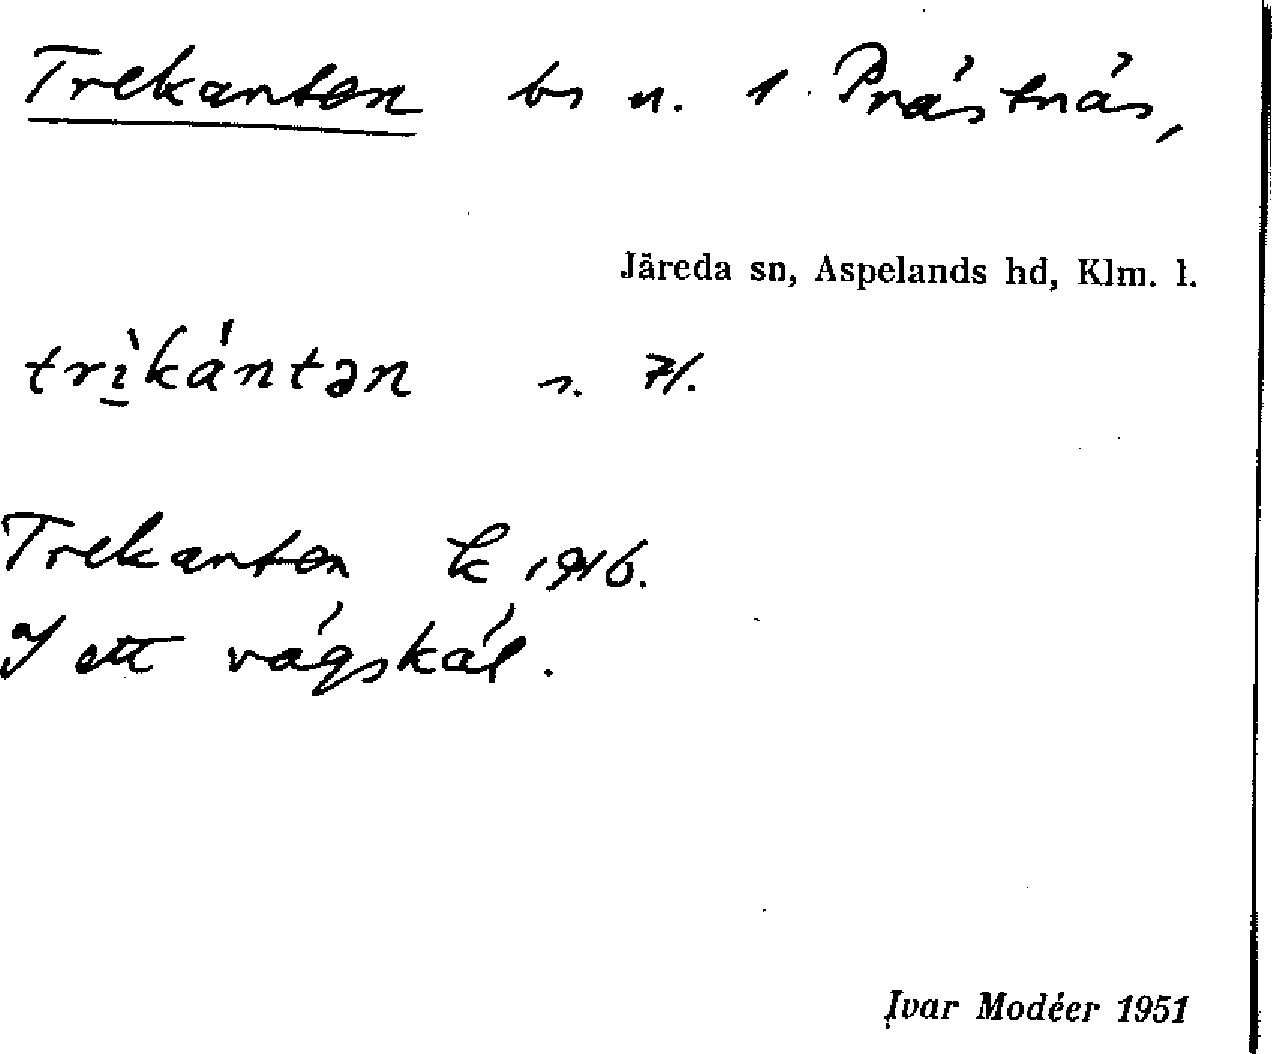 Trekanten bs n. 1 Prästnäs,
Järeda sn, Aspelands hd, Klm. l.
trı̱̀kántən n. 71.
Trekanten k 1946.
I ett vägskäl.
Ivar Modéer 1951